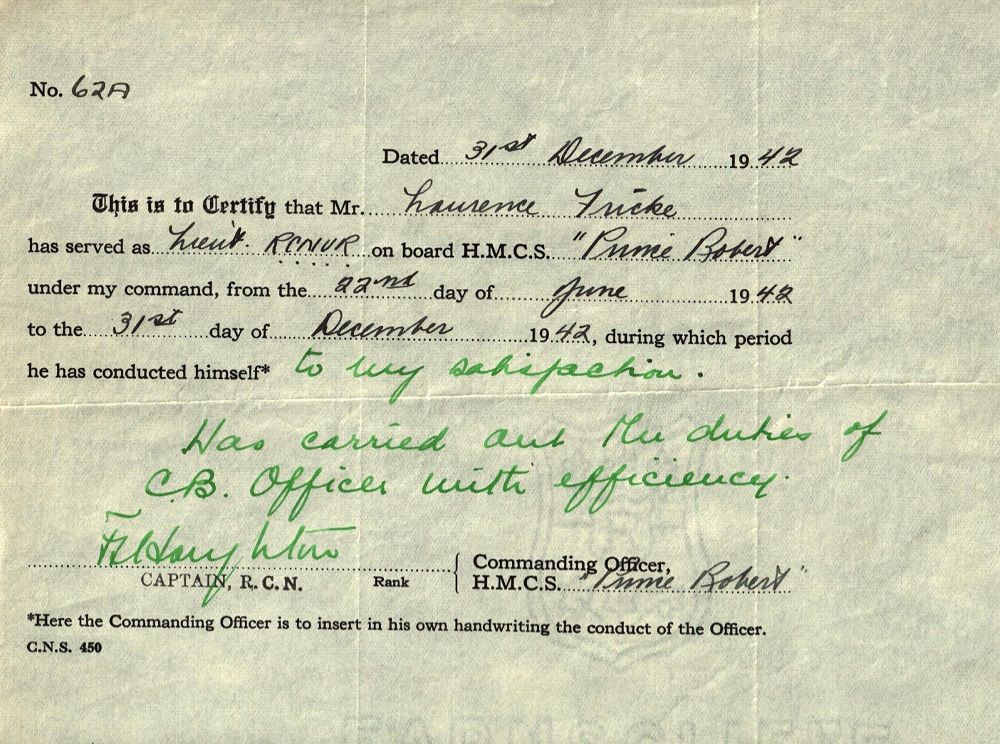 No. 62A
Dated 31st December 1942
This is to Certify that Mr. Laurence Fricke
has served as Lieut. RCNVR on board H.M.C.S. "Prince Robert"
under my command, from the 22nd day of June 1942
to the 31st day of December 1942, during which period
he has conducted himself* to my satisfaction.
Has carried out the duties of
C.B. Officer with efficiency.
F L Houghton
CAPTAIN, R.C.N. Rank { Commanding Officer,
H.M.C.S. "Prince Robert"
*Here the Commanding Officer is to insert in his own handwriting the conduct of the Officer.
C.N.S. 450